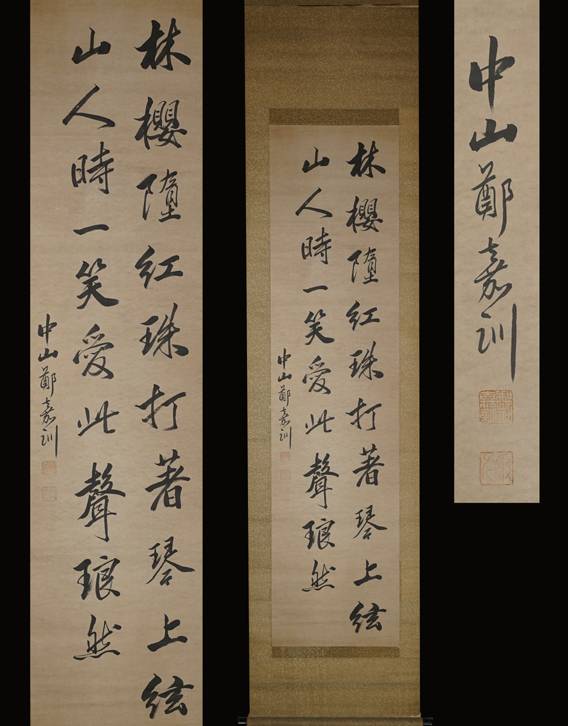 林櫻墮紅珠打著琴上絃
山人時一笑愛此聲琅然
中山鄭嘉訓
林櫻墮紅珠打著琴上絃
山人時一笑愛此聲琅然
中山鄭嘉訓
中山鄭嘉訓